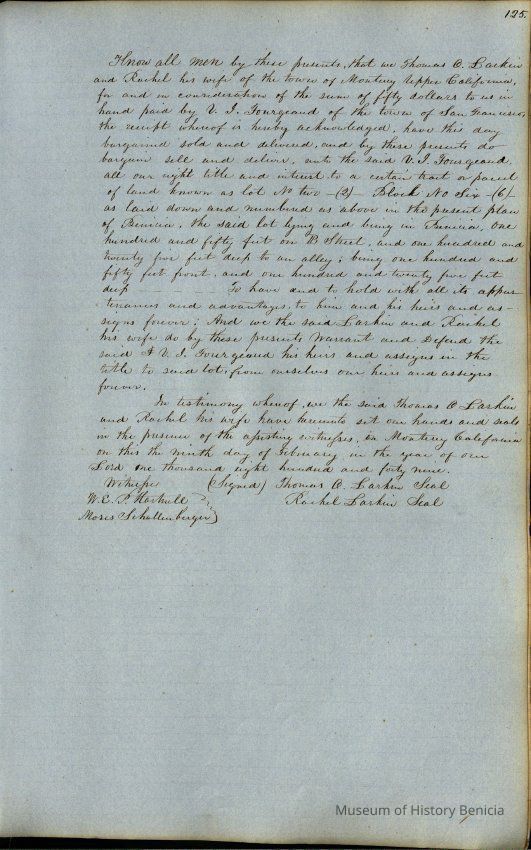 125.
Know all men by these presents, that we Thomas O. Larkin
and Rachel his wife of the town of Monterey Upper California,
for and in consideration of the sum of fifty dollars to us in
hand paid by V. J. Fourgeaud of the town of San Francisco,
the receipt whereof is hereby acknowledged, have this day
bargained sold and delivered, and by these presents do
bargain sell and deliver, unto the said V. J. Fourgeaud,
all our right title and interest to a certain tract or parcel
of land known as lot No two -(2)- Block No Six -(6)-
as laid down and numbered as above in the present plan
of Benicia, the said lot lying and being in Benicia, one
hundred and fifty feet on B Street, and one hundred and
twenty five feet deep to an alley; being one hundred and
fifty feet front, and one hundred and twenty five feet
deep To have and to hold with all its appur
tenances and advantages, to him and his heirs and as-
signs forever: And we the said Larkin and Rachel
his wife do by these presents Warrant and Defend the
said V. J. Fourgeaud his heirs and assigns in the
title to said lot, from ourselves our heirs and assigns
forever.
In testimony whereof, we the said Thomas O Larkin
and Rachel his wife have hereunto set our hands and seals
in the presence of the witnesses, in Monterey California
on this the ninth day of February in the year of our
Lord one thousand eight hundred and forty nine.
Witness (Signed) Thomas O. Larkin Seal
W. E. P. Hartnell Rachel Larkin Seal
Moses Schallenberger
Museum of History Benicia